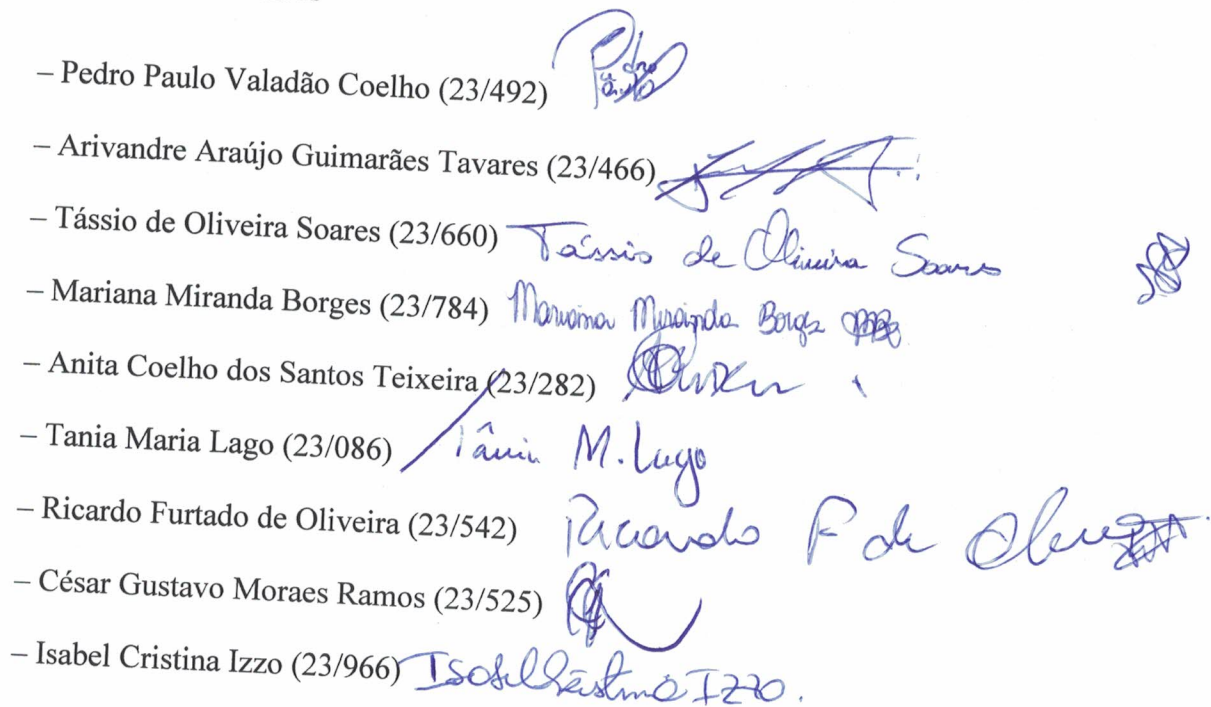 – Pedro Paulo Valadão Coelho (23/492) Pedro Paulo
– Arivandre Araújo Guimarães Tavares (23/466)
– Tássio de Oliveira Soares (23/660) Tássio de Oliveira Soares
– Mariana Miranda Borges (23/784) Mariana Miranda Borges
– Anita Coelho dos Santos Teixeira (23/282)
– Tania Maria Lago (23/086) Tânia M. Lago
– Ricardo Furtado de Oliveira (23/542) Ricardo F de
– César Gustavo Moraes Ramos (23/525)
– Isabel Cristina Izzo (23/966) Isabel Cristina Izzo.